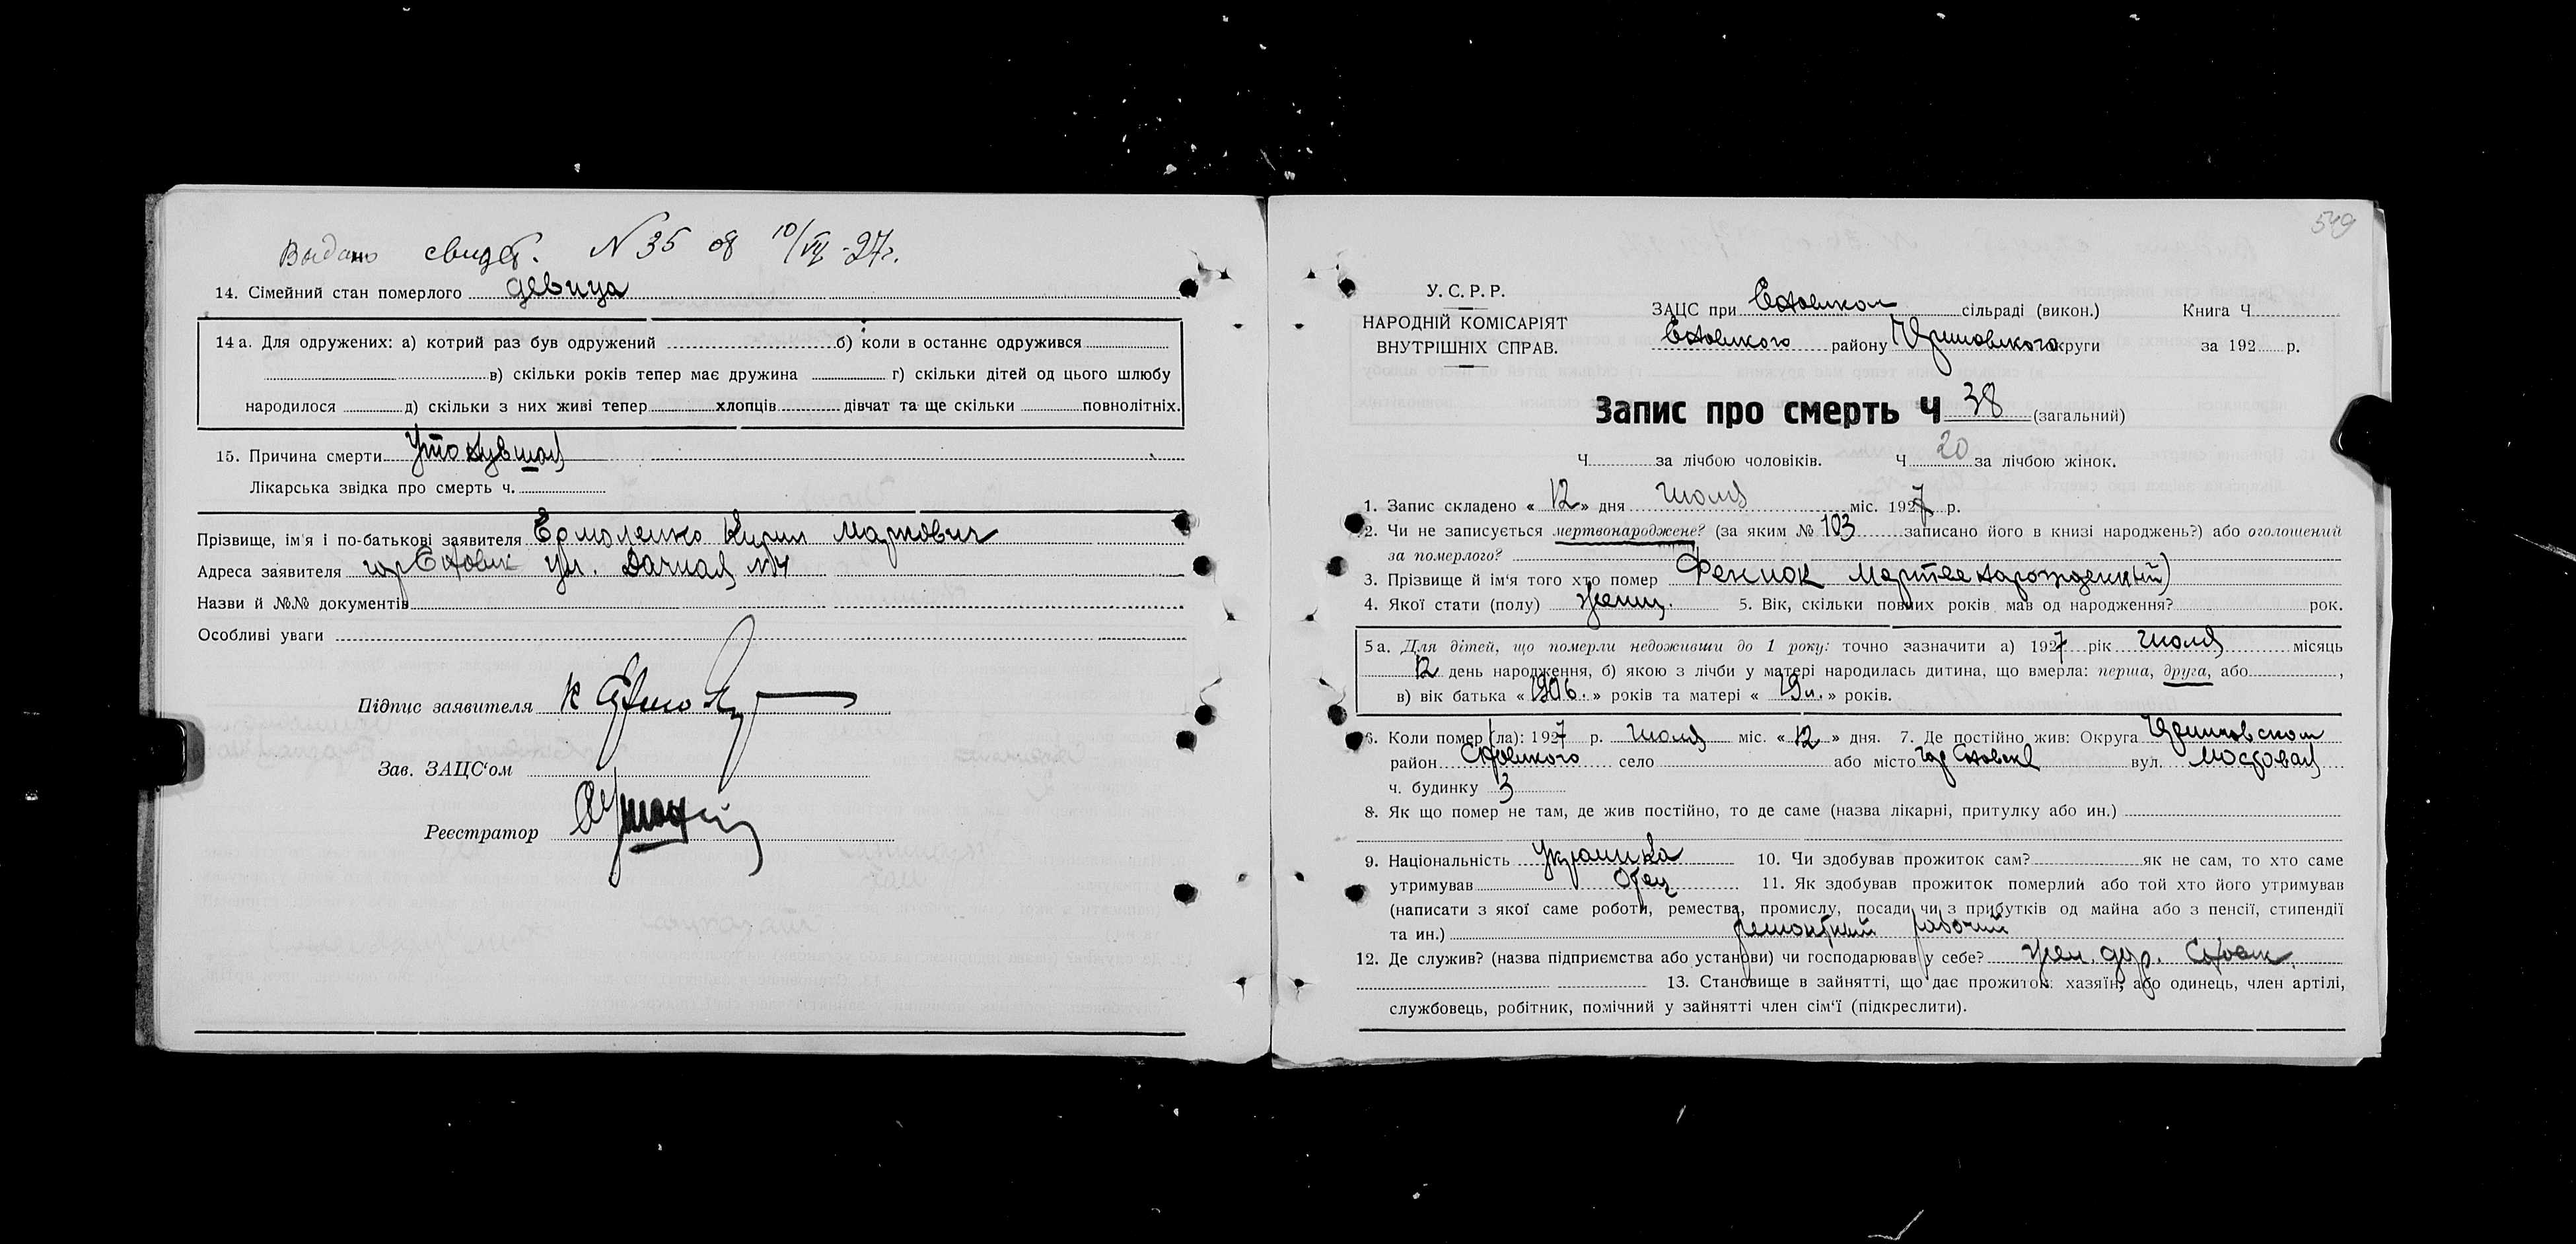 Выдано свидет. N 35 об 10/VII-27г.
14. Сімейний стан померлого девица
14 а. Для одружених: а) котрий раз був одружений б) коли в останнє одружився
в) скільки років тепер має дружина г) скільки дітей од цього шлюбу
народилося д) скільки з них живі тепер хлопців дівчат та ще скільки повнолітніх.
15. Причина смерти Утонувшая
Лікарська звідка про смерть ч.
Прізвище, ім'я і по-батькові заявителя Ермоленко Кирил Маркович
Адреса заявителя гор Сновск ул. Дачная №4
Назви й №№ документів
Особливі уваги
Підпис заявителя
Зав. ЗАЦС'ом
Реєстратор
549
У. С. Р. Р.
НАРОДНІЙ КОМІСАРІЯТ
ВНУТРІШНІХ СПРАВ.
ЗАЦС при Сновском сільраді (викон.) Книга Ч
Сновского району округи за 192 р.
Запис про смерть Ч 38 (загальний)
Ч за лічбою чоловіків. Ч 20 за лічбою жінок.
1. Запис складено « 12 » дня Июля міс. 1927 р.
2. Чи не записується мертвонароджене? (за яким № 103 записано його в книзі народжень?) або оголошений
за померлого?
3. Прізвище й ім'я того хто помер Фенюк Мертвенарожденный)
4. Якої стати (полу) женщ. 5. Вік, скільки повних років мав од народження? рок.
5 а. Для дітей, що померли недоживши до 1 року: точно зазначити а) 1927 рік Июля місяць
12 день народження, б) якою з лічби у матері народилась дитина, що вмерла: перша, друга, або ,
в) вік батька « » років та матері « 19л. » років.
6. Коли помер (ла): 1927 р. Июля міс. « 12 » дня. 7. Де постійно жив: Округа
район Сновского село або місто гор Сновск вул. Мостовая
ч. будинку 3
8. Як що помер не там, де жив постійно, то де саме (назва лікарні, притулку або ин.)
9. Національність Украинка 10. Чи здобував прожиток сам? як не сам, то хто саме
утримував Отец 11. Як здобував прожиток померлий або той хто його утримував
(написати з якої саме роботи, ремества, промислу, посади чи з прибутків од майна або з пенсії, стипендії
та ин.) ремонтный рабочий
12. Де служив? (назва підприємства або установи) чи господарював у себе? жел. дор. Сновск.
13. Становище в зайнятті, що дає прожиток: хазяїн, або одинець, член артілі,
службовець, робітник, помічний у зайнятті член сім'ї (підкреслити).